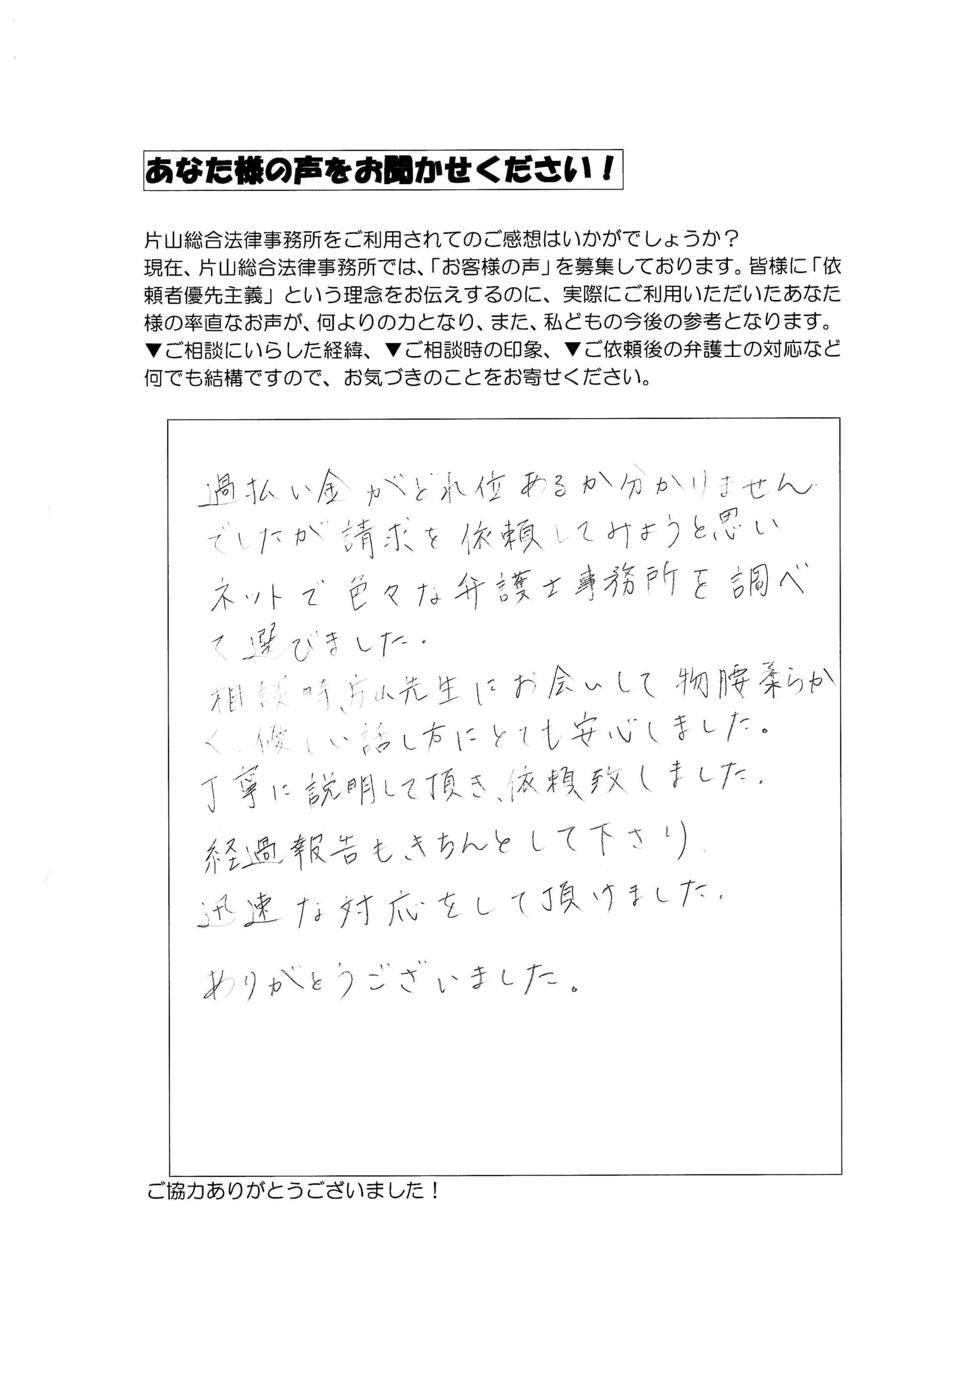 あなた様の声をお聞かせください！
片山総合法律事務所をご利用されてのご感想はいかがでしょうか？
現在、片山総合法律事務所では、「お客様の声」を募集しております。皆様に「依
頼者優先主義」という理念をお伝えするのに、実際にご利用いただいたあなた
様の率直なお声が、何よりの力となり、また、私どもの今後の参考となります。
▼ご相談にいらした経緯、▼ご相談時の印象、▼ご依頼後の弁護士の対応など
何でも結構ですので、お気づきのことをお寄せください。
過払い金がどれ位あるか分かりません
でしたが請求を依頼してみようと思い
ネットで色々な弁護士事務所を調べ
て選びました.
相談時、片山先生にお会いして物腰柔らか
く、優しい話し方にとても安心しました。
丁寧に説明して頂き、依頼致しました.
経過報告もきちんとして下さり、
迅速な対応をして頂けました.
ありがとうございました。
ご協力ありがとうございました！